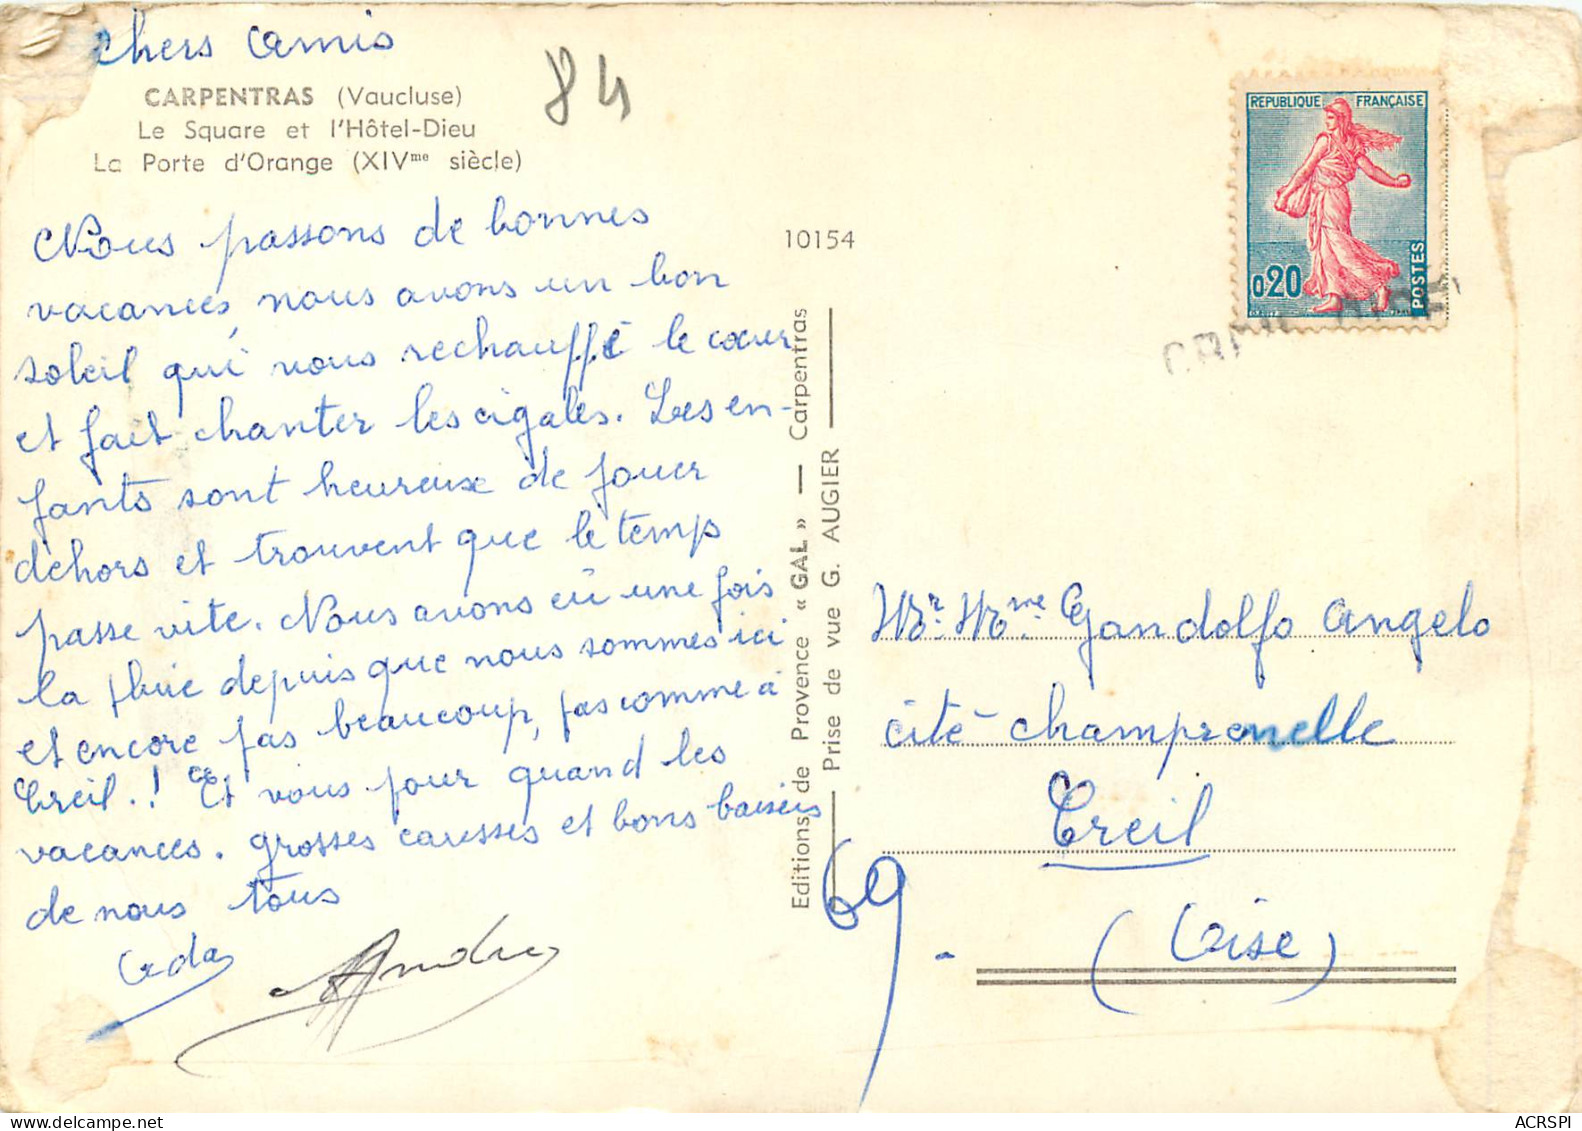 chers Amis
CARPENTRAS (Vaucluse)
Le Square et l'Hôtel-Dieu
La Porte d'Orange (XIVme siècle)
84
Nous passons de bonnes
vacances, nous avons un bon
soleil qui nous rechauffé le cœur
et fait chanter les cigales. Les en-
fants sont heureuse de jouer
dehors et trouvent que le temps
passe vite. Nous avons eü une fois
la pluie depuis que nous sommes ici
et encore pas beaucoup, pas comme à
Creil.! Et vous pour quand les
vacances. grosses caresses et bons baisers
de nous tous
Ada
André
10154
Editions de Provence « GAL » — Carpentras
Prise de vue G. AUGIER
REPUBLIQUE FRANÇAISE
0,20
POSTES
Mr. Mme Gandolfo Angelo
cité champrenelle
Creil
(Oise)
69.
ACRSPI